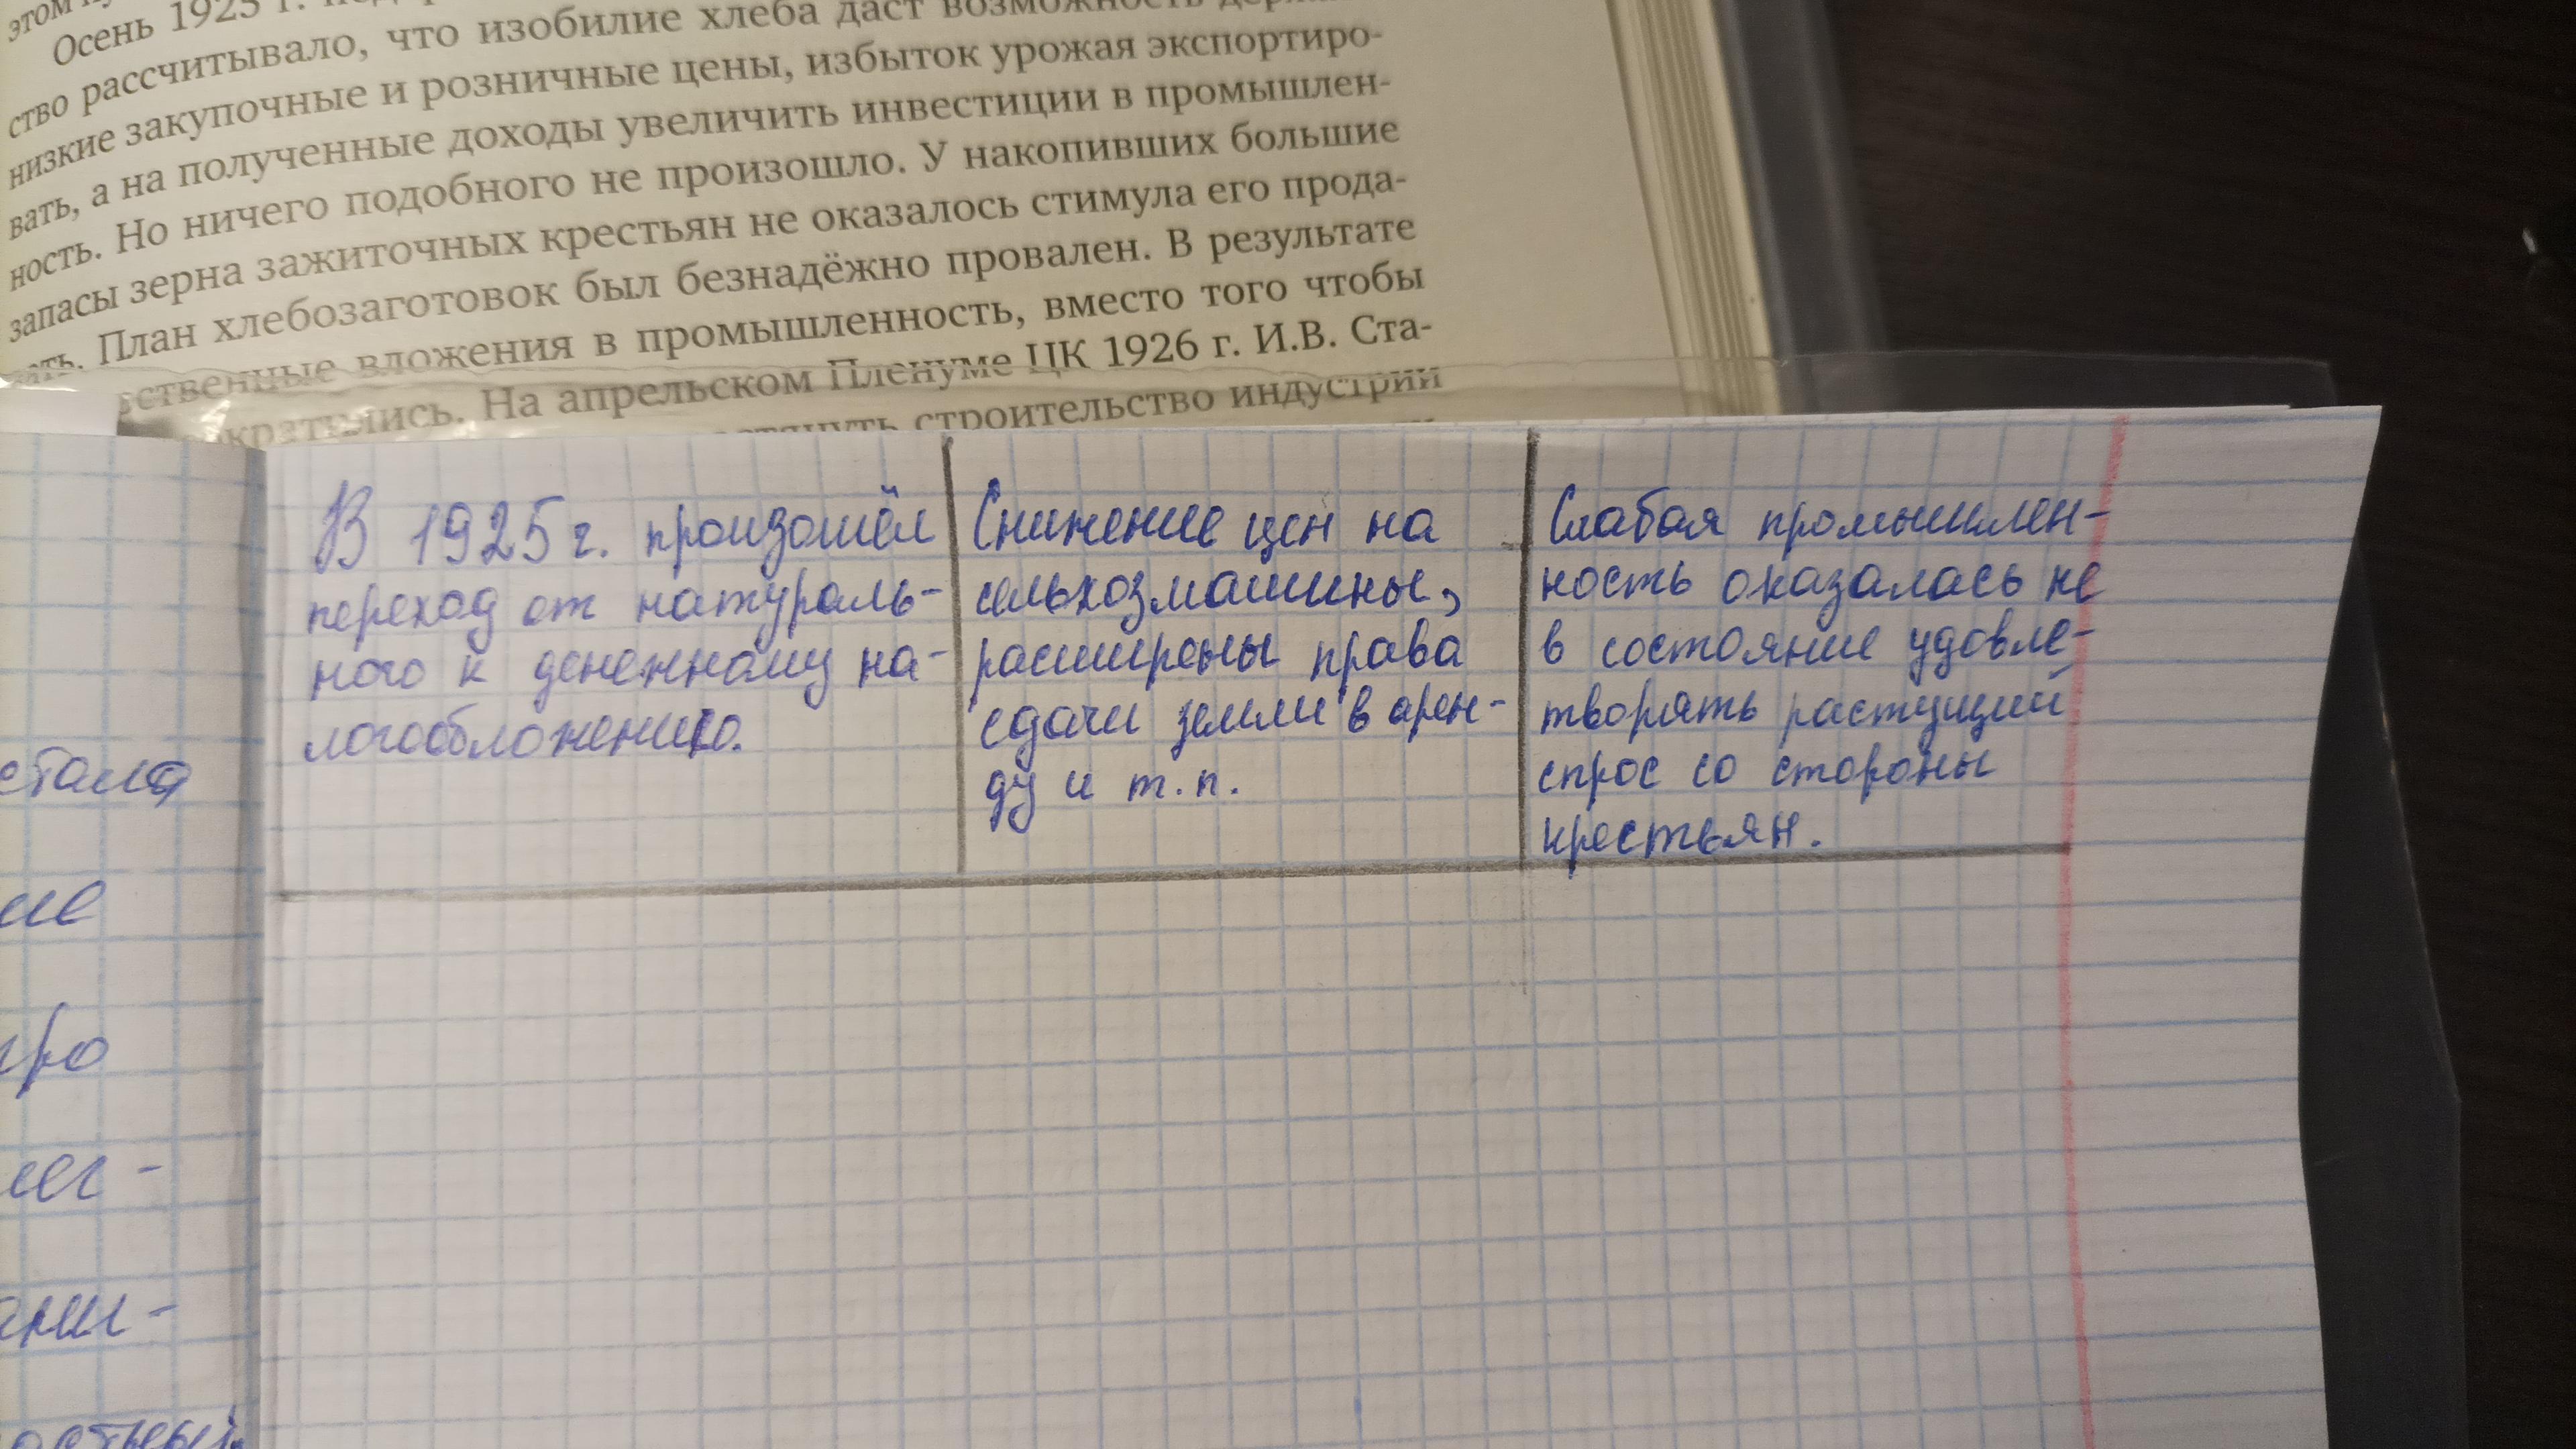 Осень 1925 г.
ство рассчитывало, что изобилие хлеба даст возможность
низкие закупочные и розничные цены, избыток урожая экспортиро-
вать, а на полученные доходы увеличить инвестиции в промышлен-
ность. Но ничего подобного не произошло. У накопивших большие
запасы зерна зажиточных крестьян не оказалось стимула его прода-
вать. План хлебозаготовок был безнадёжно провален. В результате
вложения в промышленность, вместо того чтобы
На апрельском Пленуме ЦК 1926 г. И.В. Ста-
строительство индустрии
В 1925 г. произошёл
переход от натураль-
ного к денежному на-
логообложению.
Снижение цен на
сельхозмашины,
расширены права
сдачи земли в арен-
ду и т.п.
Слабая промышлен-
ность оказалась не
в состояние удовле-
творять растущий
спрос со стороны
крестьян.